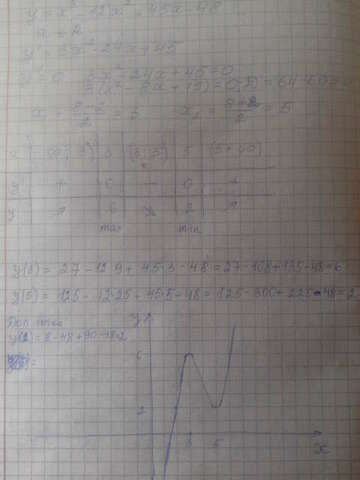 y = x³ - 12x² + 45x - 48
y' = 3x² - 24x + 45
y' = 0 3x² - 24x + 45 = 0
x₁ = 8-2/2 = 3 x₂ = 8+2/2 = 5
x (-∞; 3) 3 (3; 5) 5 (5; +∞)
y' + 0 - 0 +
y ↗ 6 ↘ 2 ↗
max min
y(3) = 27 - 12·9 + 45·3 - 48 = 27 - 108 + 135 - 48 = 6
y(5) = 125 - 12·25 + 45·5 - 48 = 125 - 300 + 225 - 48 = 2
y(2) = 8 - 48 + 90 - 48 = 2
y
6
2
3 5
x